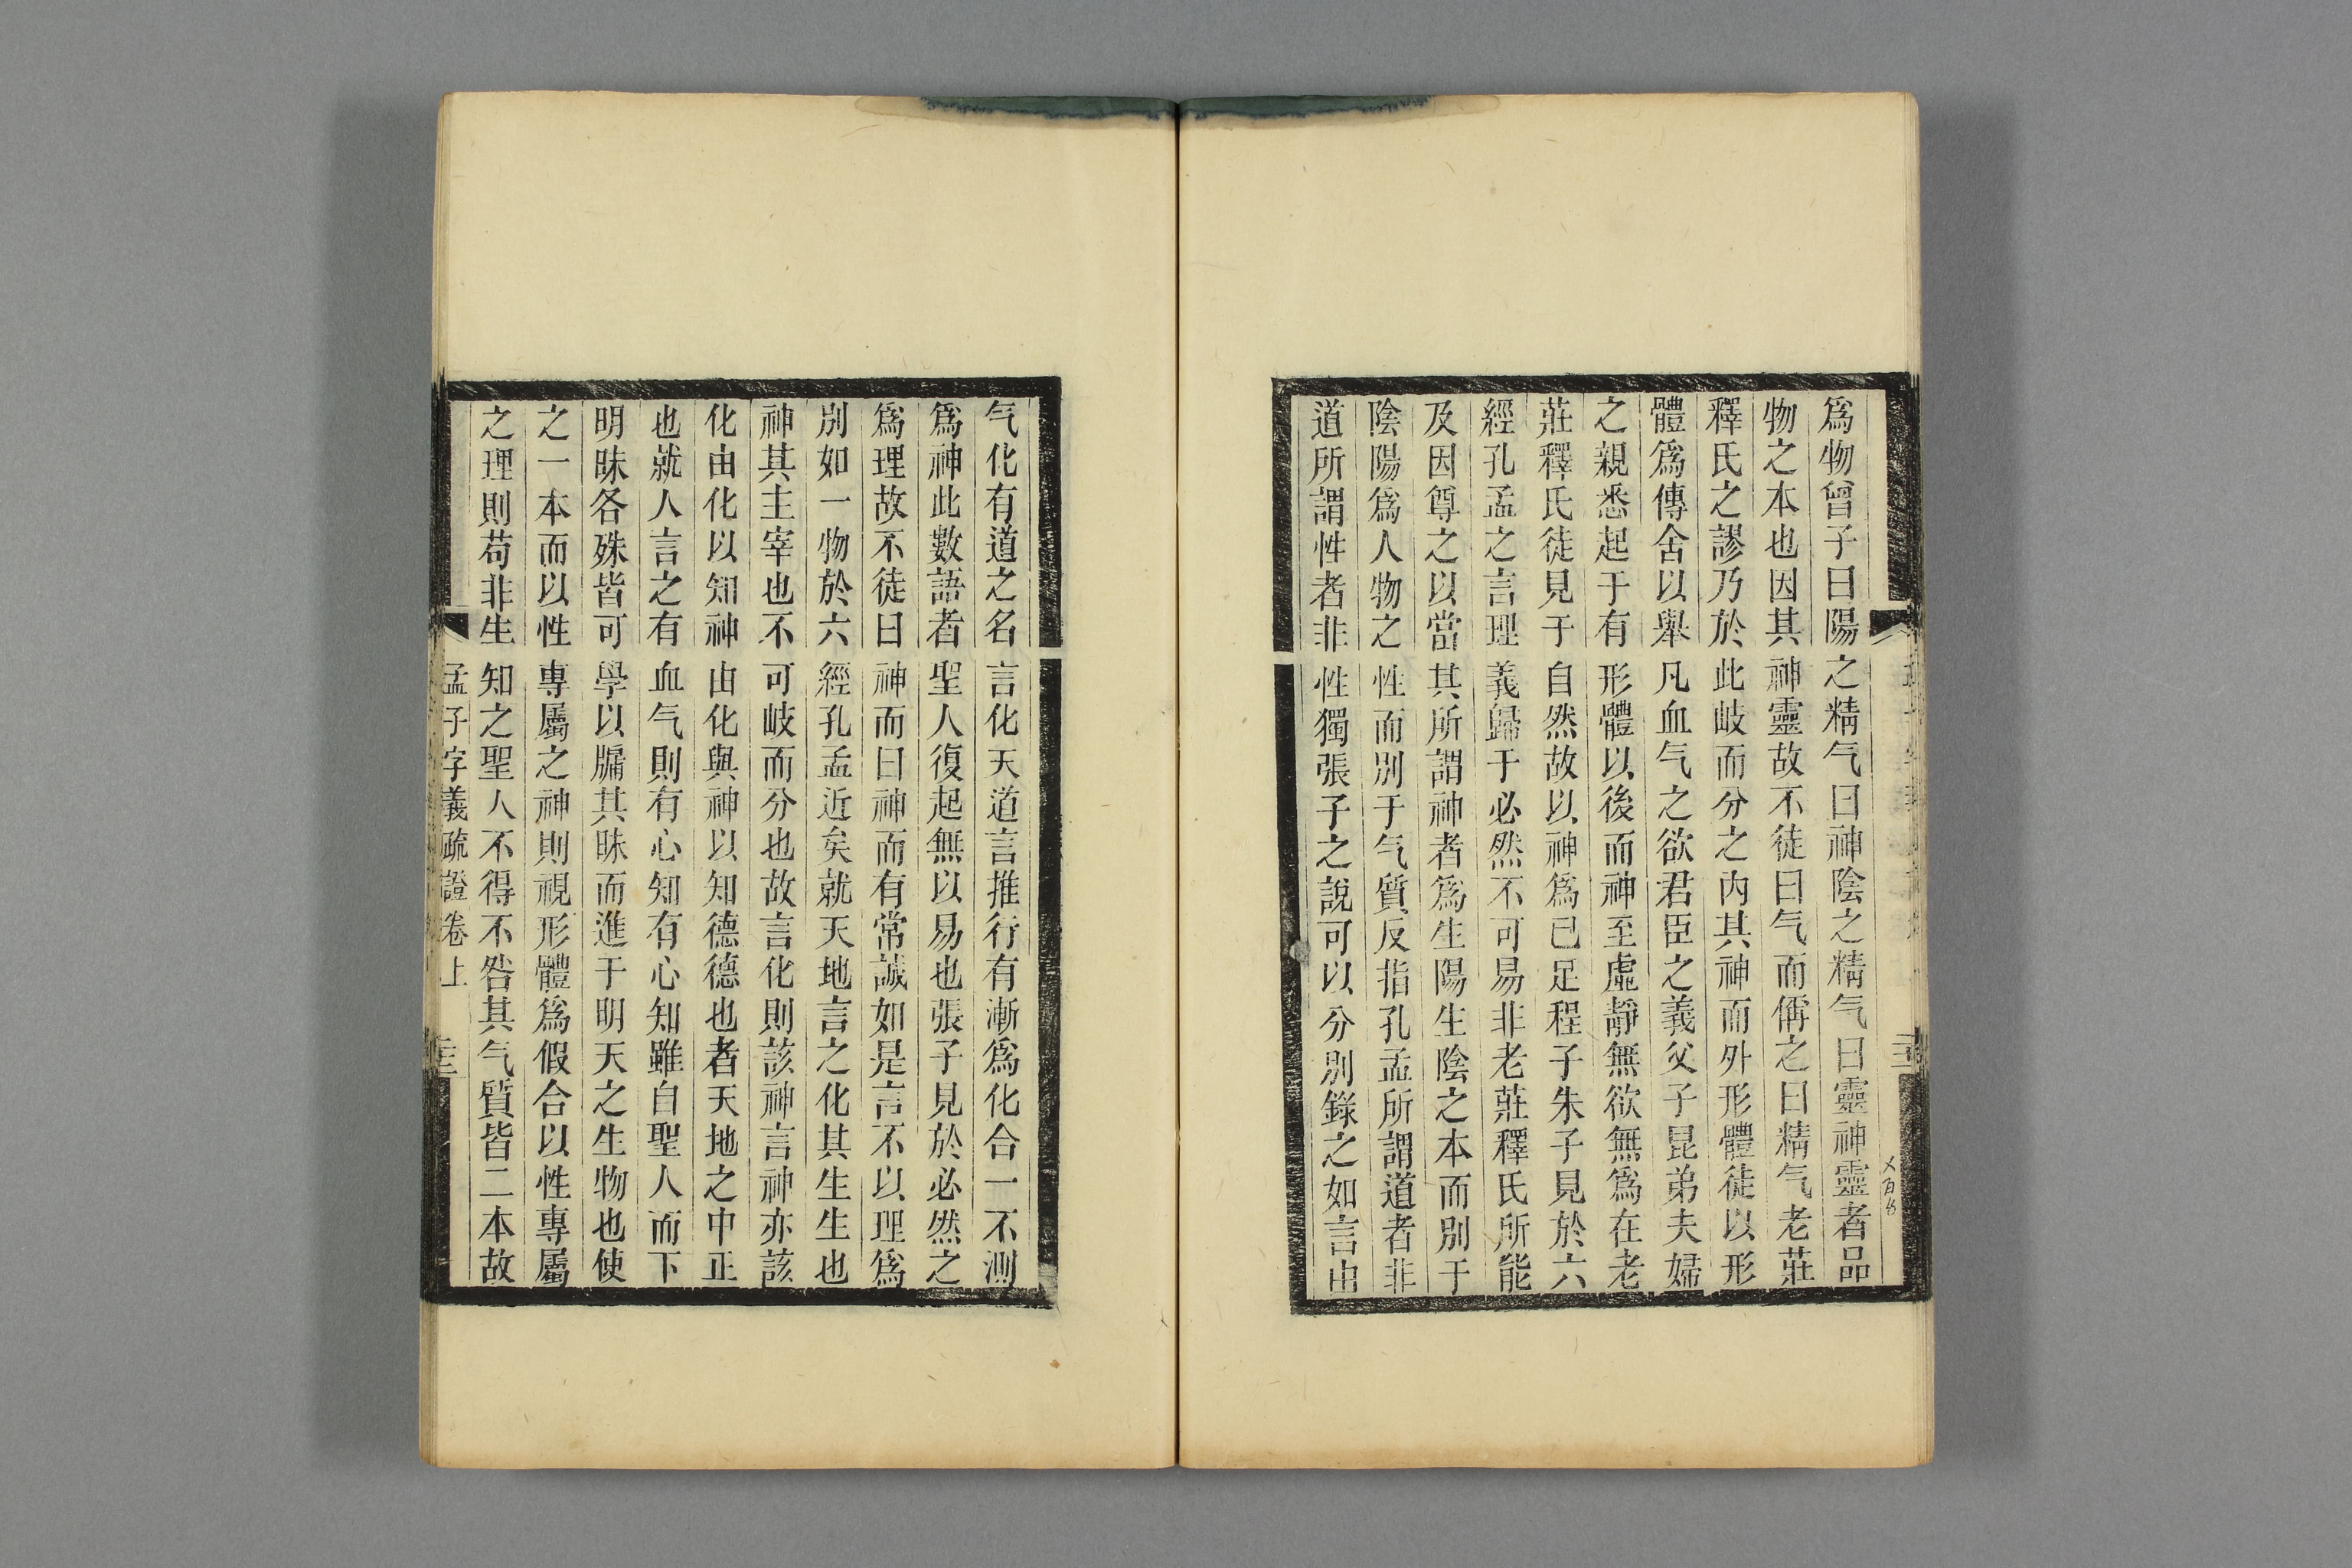 爲物曾子曰陽之精气曰神陰之精气曰靈神靈者品
物之本也因其神靈故不徒曰气而偁之曰精气老莊
釋氏之謬乃於此岐而分之內其神而外形體徒以形
體爲傳舍以舉凡血气之欲君臣之義父子昆弟夫婦
之親悉起于有形體以後而神至虛靜無欲無爲在老
莊釋氏徒見于自然故以神爲已足程子朱子見於六
經孔孟之言理義歸于必然不可易非老莊釋氏所能
及因尊之以當其所謂神者爲生陽生陰之本而別于
陰陽爲人物之性而別于气質反指孔孟所謂道者非
道所謂性者非性獨張子之說可以分別錄之如言由
气化有道之名言化天道言推行有漸爲化合一不測
爲神此數語者聖人復起無以易也張子見於必然之
爲理故不徒曰神而曰神而有常誠如是言不以理爲
別如一物於六經孔孟近矣就天地言之化其生生也
神其主宰也不可岐而分也故言化則該神言神亦該
化由化以知神由化與神以知德德也者天地之中正
也就人言之有血气則有心知有心知雖自聖人而下
明昧各殊皆可學以牖其昧而進于明天之生物也使
之一本而以性專屬之神則視形體爲假合以性專屬
之理則苟非生知之聖人不得不咎其气質皆二本故
孟子字義疏證卷上